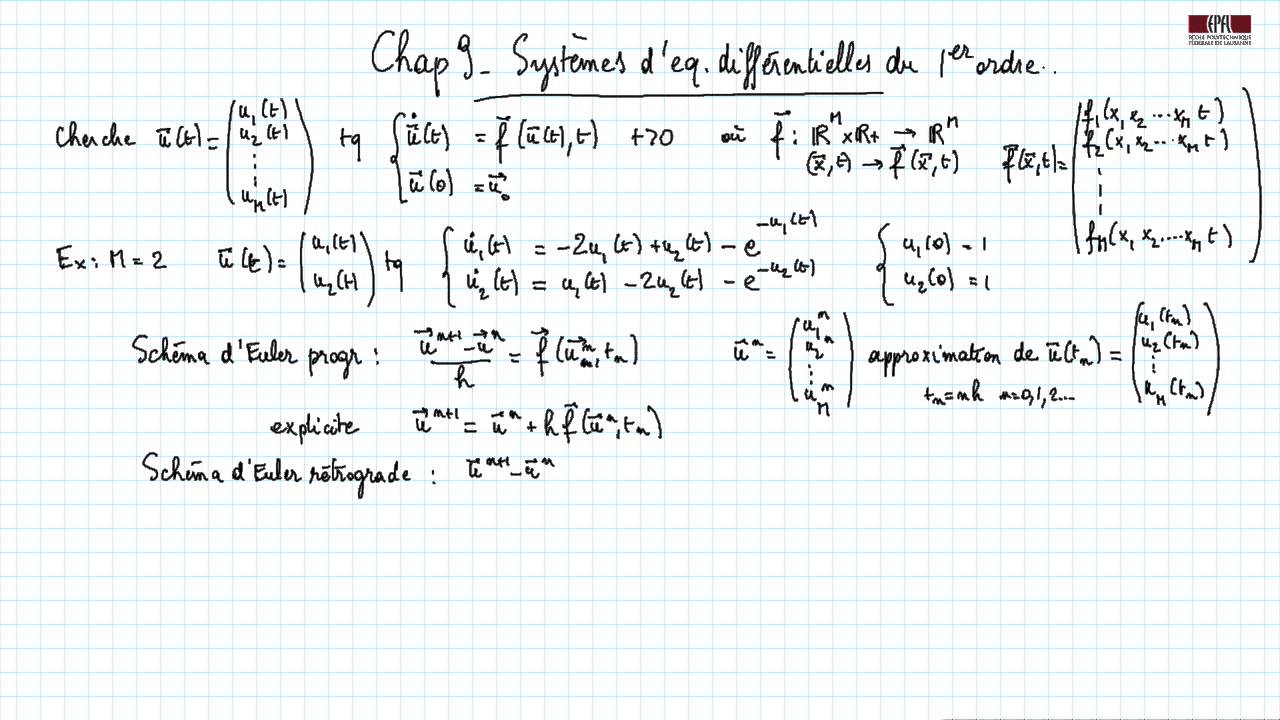 EPFL
ÉCOLE POLYTECHNIQUE
FÉDÉRALE DE LAUSANNE
Chap 9_ Systèmes d'eq. différentielles du 1er ordre..
Cherche u⃗(t) = (u₁(t) u₂(t) ⋮ u_M(t)) tq { u̇⃗(t) = f⃗(u⃗(t), t) t>0 où f⃗ : ℝᴹ×ℝ+ → ℝᴹ f⃗(x⃗,t) = (f₁(x₁ x₂ ... x_M t) f₂(x₁ x₂ ... x_M t) ⋮ f_M(x₁ x₂ ... x_M t))
u⃗(0) = u⃗₀ (x⃗,t) → f⃗(x⃗,t)
Ex: M = 2 u⃗(t) = (u₁(t) u₂(t)) tq { u̇₁(t) = -2u₁(t) + u₂(t) - e^{-u₁(t)} { u₁(0) = 1
u̇₂(t) = u₁(t) - 2u₂(t) - e^{-u₂(t)} u₂(0) = 1
Schéma d'Euler progr : (u⃗ⁿ⁺¹ - u⃗ⁿ)/h = f⃗(u⃗ⁿ, tₙ) u⃗ⁿ = (u₁ⁿ u₂ⁿ ⋮ u_Mⁿ) approximation de u⃗(tₙ) = (u₁(tₙ) u₂(tₙ) ⋮ u_M(tₙ))
tₙ = nh n=0,1,2...
explicite u⃗ⁿ⁺¹ = u⃗ⁿ + h f⃗(u⃗ⁿ, tₙ)
Schéma d'Euler rétrograde : u⃗ⁿ⁺¹ - u⃗ⁿ